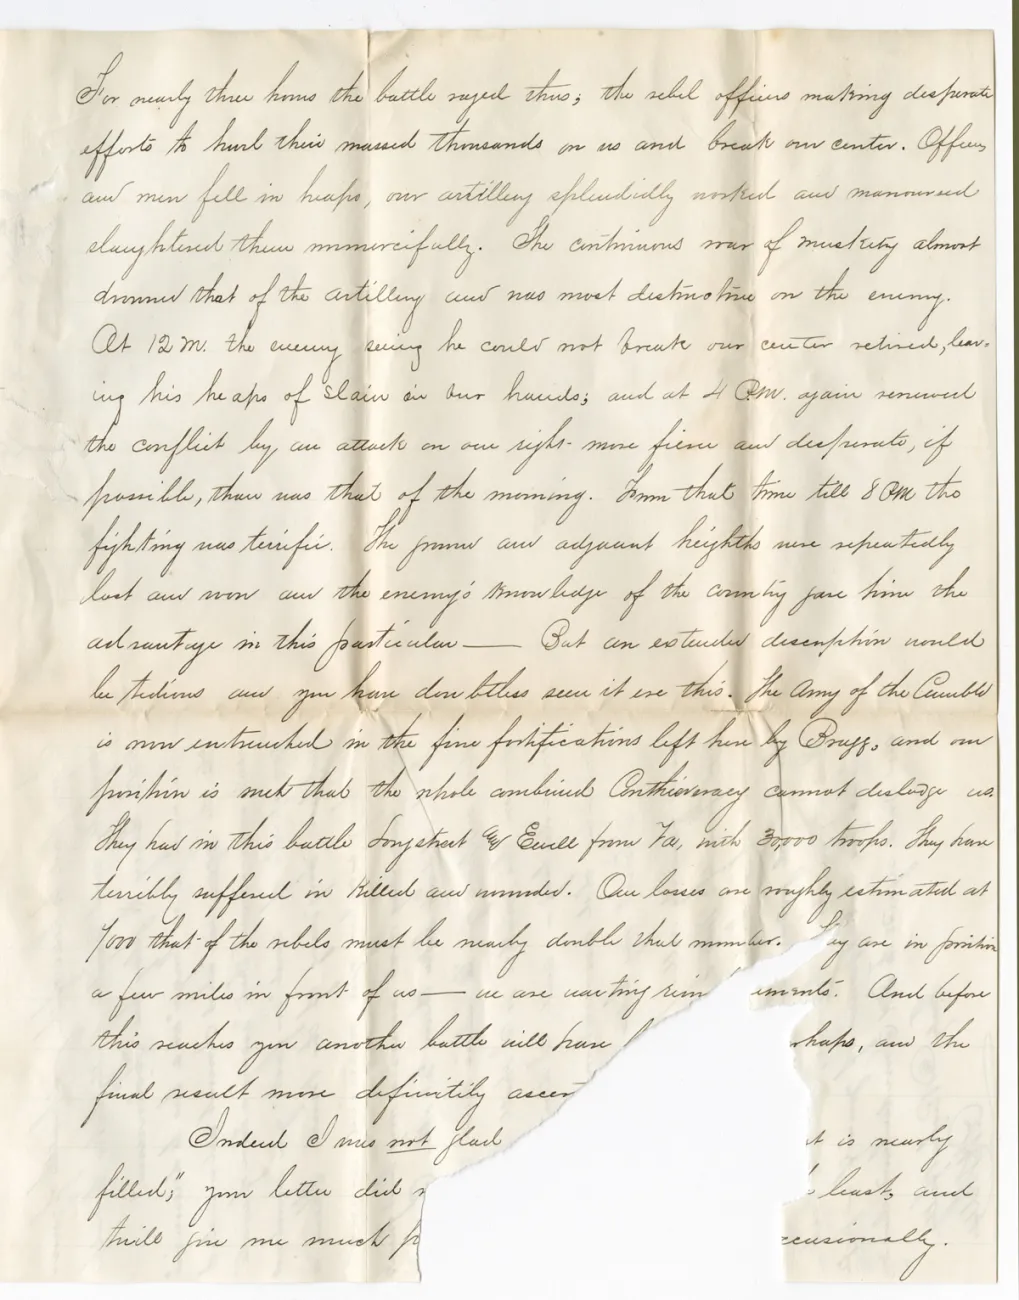 For nearly three hours the battle raged thus; the rebel officers making desperate
efforts to hurl their massed thousands on us and break our center. Officers
and men fell in heaps, our artillery splendidly worked and manouvred
slaughtered them unmercifully. The continuous roar of musketry almost
drowned that of the artillery and was most destructive on the enemy.
At 12 M. the enemy seeing he could not break our center retired, leav-
ing his heaps of slain in our hands; and at 4 P.M. again renewed
the conflict by an attack on our right - more fierce and desperate, if
possible, than was that of the morning. From that time till 8 PM the
fighting was terrific. The ground and adjacent heights were repeatedly
lost and won and the enemy's knowledge of the country gave him the
advantage in this particular — But an extended description would
be tedious and you have doubtless seen it ere this. The Army of the Cumbld
is now entrenched in the fine fortifications left here by Bragg, and our
position is such that the whole combined Confederacy cannot dislodge us.
They had in this battle Longstreet & Ewell from Va, with 30,000 troops. They have
terribly suffered in killed and wounded. Our losses are roughly estimated at
7000 that of the rebels must be nearly double that number. ey are in position
a few miles in front of us — we are waiting rein ements. And before
this reaches you another battle will have rhaps, and the
final result more definitily ascer
Indeed I was not glad t is nearly
filled;" your letter did least, and
twill give me much p ccasionally.